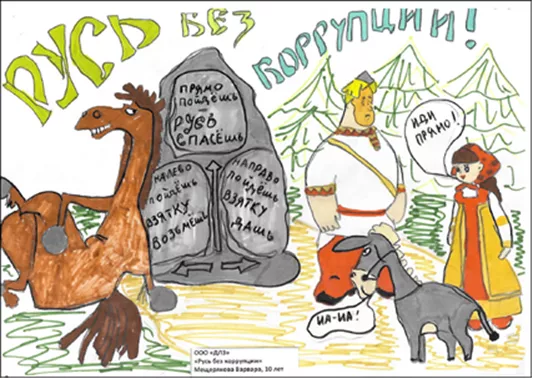 РУСЬ БЕЗ
КОРРУПЦИИ!
ПРЯМО
ПОЙДЁШЬ
—
РУСЬ
СПАСЁШЬ
НАЛЕВО
ПОЙДЁШЬ
ВЗЯТКУ
ВОЗЬМЁШЬ
НАПРАВО
ПОЙДЁШЬ
ВЗЯТКУ
ДАШЬ
ИДИ
ПРЯМО!
ИА-ИА!
ООО «ДПЗ»
«Русь без коррупции»
Мещерякова Варвара, 10 лет